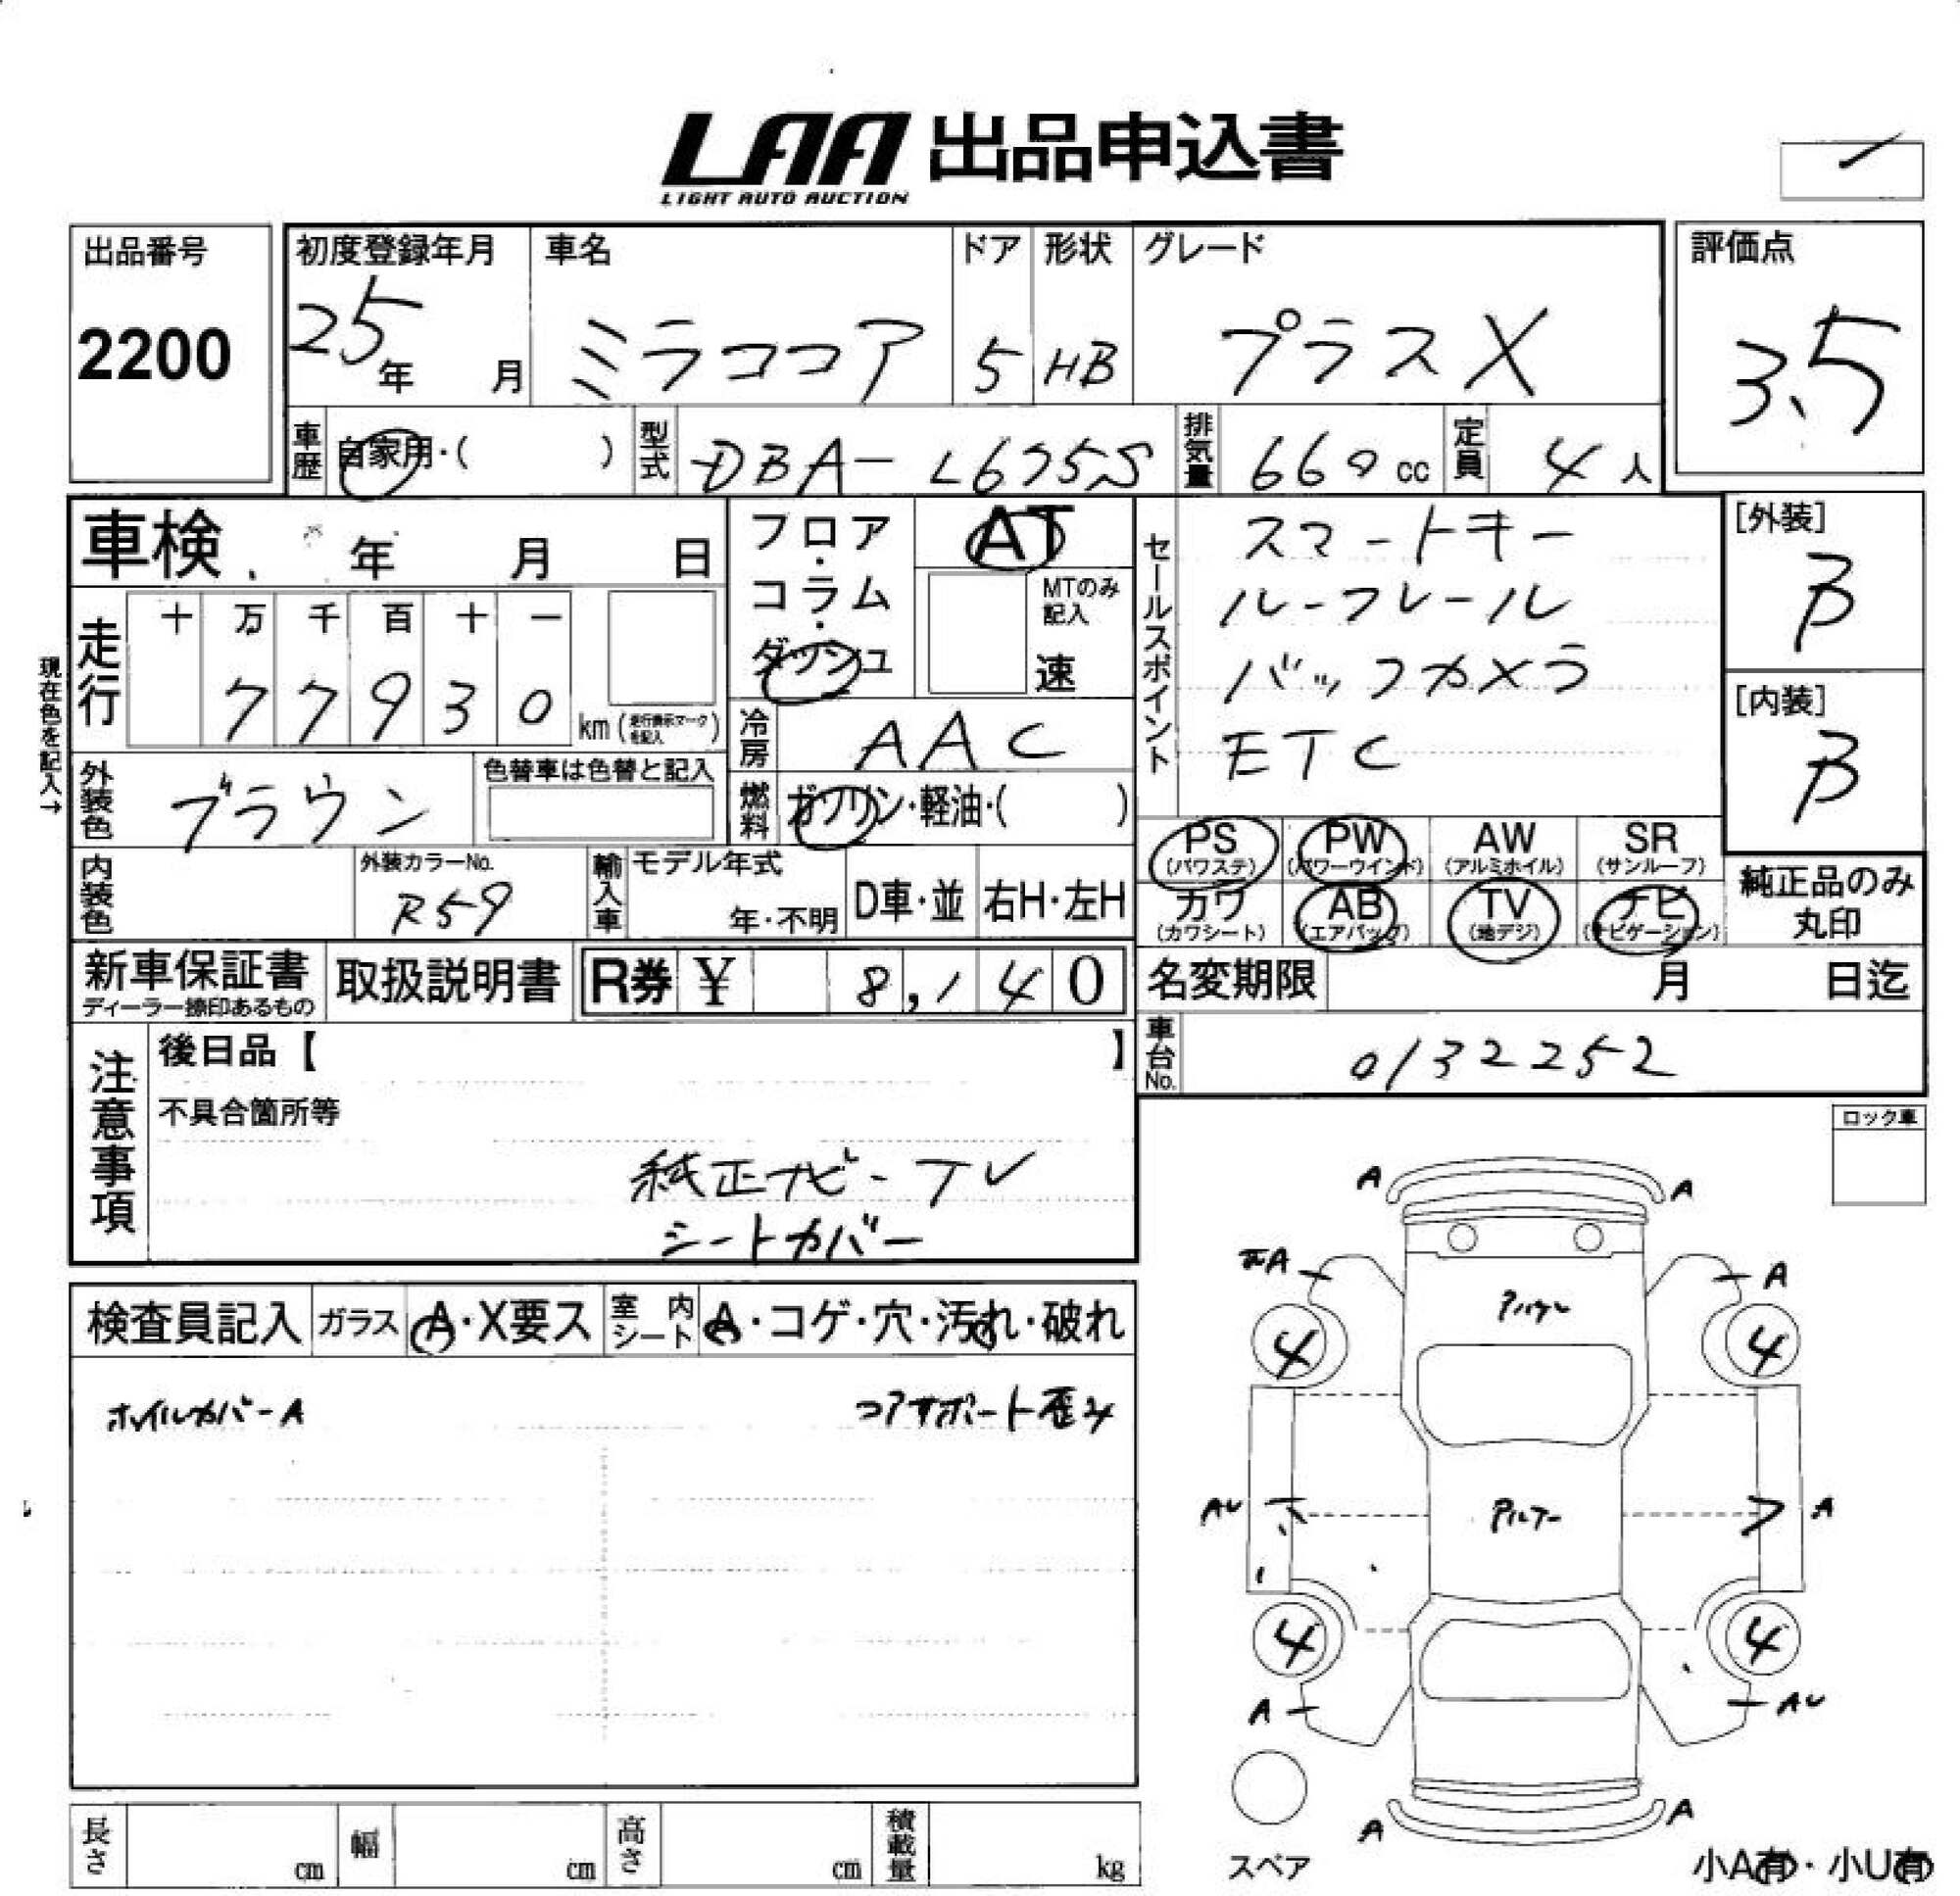 LAA 出品申込書
LIGHT AUTO AUCTION
出品番号
2200
初度登録年月
25年 月
車名
ミラココア
ドア
5
形状
HB
グレード
プラスX
評価点
3.5
車歴
自家用・( )
型式
DBA-L675S
排気量
660cc
定員
4人
車検 年 月 日
フロア・コラム・ダッシュ
AT
MTのみ記入
速
セールスポイント
スマートキー
ルーフレール
バックカメラ
ETC
[外装]
B
[内装]
B
現在色を記入→
走行
十 万 千 百 十 一
7 7 9 3 0
km
冷房
AAC
外装色
ブラウン
色替車は色替と記入
燃料
ガソリン・軽油・( )
PS
(パワステ)
PW
(パワーウインド)
AW
(アルミホイル)
SR
(サンルーフ)
内装色
外装カラーNo.
R59
輸入車
モデル年式
年・不明
D車・並
右H・左H
カワ
(カワシート)
AB
(エアバッグ)
TV
(地デジ)
ナビ
(ナビゲーション)
純正品のみ
丸印
新車保証書
ディーラー捺印あるもの
取扱説明書
R券 ¥ 8,140
名変期限 月 日迄
車台No.
0132252
注意事項
後日品【 】
不具合箇所等
純正ナビ-TV
シートカバー
ロック車
検査員記入
ガラス
A・X要ス
室内シート
A・コゲ・穴・汚れ・破れ
ホイルカバーA
コアサポート歪み
A A
A A
4 4
AU A
4 4
A AU
A A
スペア
小A有・小U有
長さ cm
幅 cm
高さ cm
積載量 kg